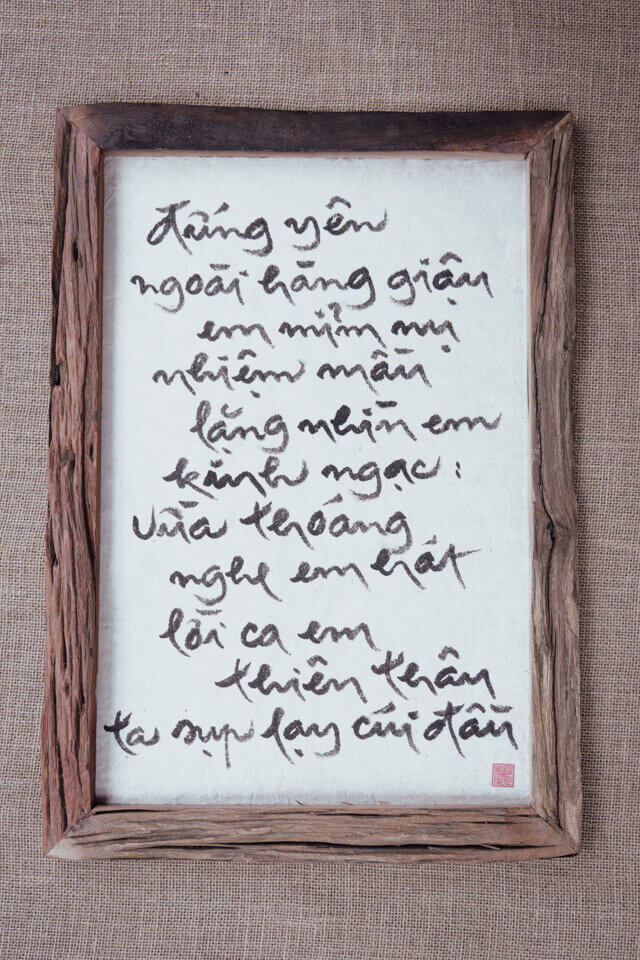 đứng yên
ngoài hàng giậu
em mỉm nụ
nhiệm mầu
lặng nhìn em
kinh ngạc :
vừa thoáng
nghe em hát
lời ca em
thiên thâu
ta sụp lạy cúi đầu